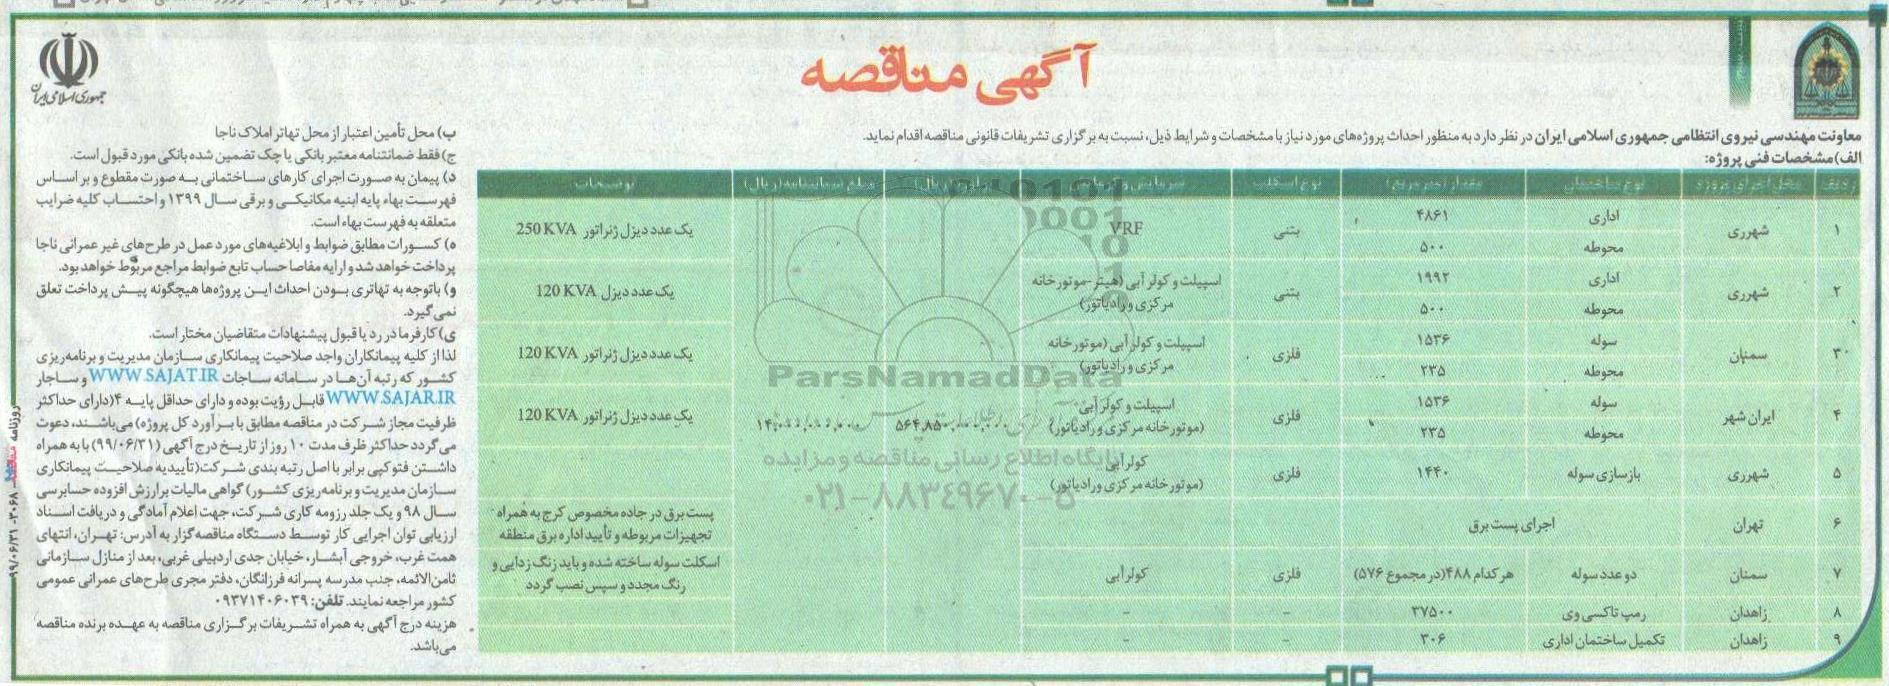 آگهی مناقصه
جمهوری اسلامی ایران
معاونت مهندسی نیروی انتظامی جمهوری اسلامی ایران در نظر دارد به منظور احداث پروژه‌های مورد نیاز با مشخصات و شرایط ذیل، نسبت به برگزاری تشریفات قانونی مناقصه اقدام نماید.
الف) مشخصات فنی پروژه:
ردیف محل اجرای پروژه نوع ساختمان مقدار (متر مربع) نوع اسکلت سرمایش و (ریال) مبلغ ضمانتنامه (ریال) توضیحات
۱ شهرری اداری ۴۸۶۱ بتنی VRF یک عدد دیزل ژنراتور 250 KVA
محوطه ۵۰۰
۲ شهرری اداری ۱۹۹۲ بتنی اسپیلت و کولر آبی (هیتر-موتورخانه یک عدد دیزل 120 KVA
محوطه ۵۰۰ مرکزی و رادیاتور)
۳ سمنان سوله ۱۵۳۶ فلزی اسپیلت و کولر آبی (موتورخانه یک عدد دیزل ژنراتور 120 KVA
محوطه ۲۳۵ مرکزی و رادیاتور)
۴ ایران شهر سوله ۱۵۳۶ فلزی اسپیلت و کولر آبی یک عدد دیزل ژنراتور 120 KVA
محوطه ۲۳۵ (موتورخانه مرکزی و رادیاتور)
۵ شهرری بازسازی سوله ۱۴۴۰ فلزی کولر آبی
(موتورخانه مرکزی و رادیاتور)
۶ تهران اجرای پست برق پست برق در جاده مخصوص کرج به همراه
تجهیزات مربوطه و تأیید اداره برق منطقه
۷ سمنان دو عدد سوله هر کدام ۴۸۸ (در مجموع ۵۷۶) فلزی کولر آبی اسکلت سوله ساخته شده و باید زنگ زدایی و
رنگ مجدد و سپس نصب گردد
۸ زاهدان رمپ تاکسی وی ۳۷۵۰۰ - -
۹ زاهدان تکمیل ساختمان اداری ۳۰۶ - -
ParsNamadData
پایگاه اطلاع رسانی مناقصه و مزایده
۰۲۱-۸۸۳۴۹۶۷۰-۵
ب) محل تأمین اعتبار از محل تهاتر املاک ناجا
ج) فقط ضمانتنامه معتبر بانکی یا چک تضمین شده بانکی مورد قبول است.
د) پیمان به صورت اجرای کارهای ساختمانی به صورت مقطوع و بر اساس
فهرست بهاء پایه ابنیه مکانیکی و برقی سال ۱۳۹۹ و احتساب کلیه ضرایب
متعلقه به فهرست بهاء است.
ه) کسورات مطابق ضوابط و ابلاغیه‌های مورد عمل در طرح‌های غیر عمرانی ناجا
پرداخت خواهد شد و ارایه مفاصا حساب تابع ضوابط مراجع مربوط خواهد بود.
و) باتوجه به تهاتری بودن احداث این پروژه‌ها هیچگونه پیش پرداخت تعلق
نمی گیرد.
ی) کارفرما در رد یا قبول پیشنهادات متقاضیان مختار است.
لذا از کلیه پیمانکاران واجد صلاحیت پیمانکاری سازمان مدیریت و برنامه‌ریزی
کشور که رتبه آن‌ها در سامانه ساجات WWW.SAJAT.IR و ساجار
WWW.SAJAR.IR قابل رؤیت بوده و دارای حداقل پایه ۴ (دارای حداکثر
ظرفیت مجاز شرکت در مناقصه مطابق با برآورد کل پروژه) می‌باشند، دعوت
می گردد حداکثر ظرف مدت ۱۰ روز از تاریخ درج آگهی (۹۹/۰۶/۳۱) با به همراه
داشتن فتوکپی برابر با اصل رتبه بندی شرکت (تأییدیه صلاحیت پیمانکاری
سازمان مدیریت و برنامه ریزی کشور) گواهی مالیات بر ارزش افزوده حسابرسی
سال ۹۸ و یک جلد رزومه کاری شرکت، جهت اعلام آمادگی و دریافت اسناد
ارزیابی توان اجرایی کار توسط دستگاه مناقصه گزار به آدرس: تهران، انتهای
همت غرب، خروجی آبشار، خیابان جدی اردبیلی غربی، بعد از منازل سازمانی
ثامن الائمه، جنب مدرسه پسرانه فرزانگان، دفتر مجری طرح‌های عمرانی عمومی
کشور مراجعه نمایند. تلفن: ۰۹۳۷۱۴۰۶۰۳۹
هزینه درج آگهی به همراه تشریفات برگزاری مناقصه به عهده برنده مناقصه
می‌باشد.
روزنامه مناقصه ۳۰۶۸- ۹۹/۰۶/۳۱